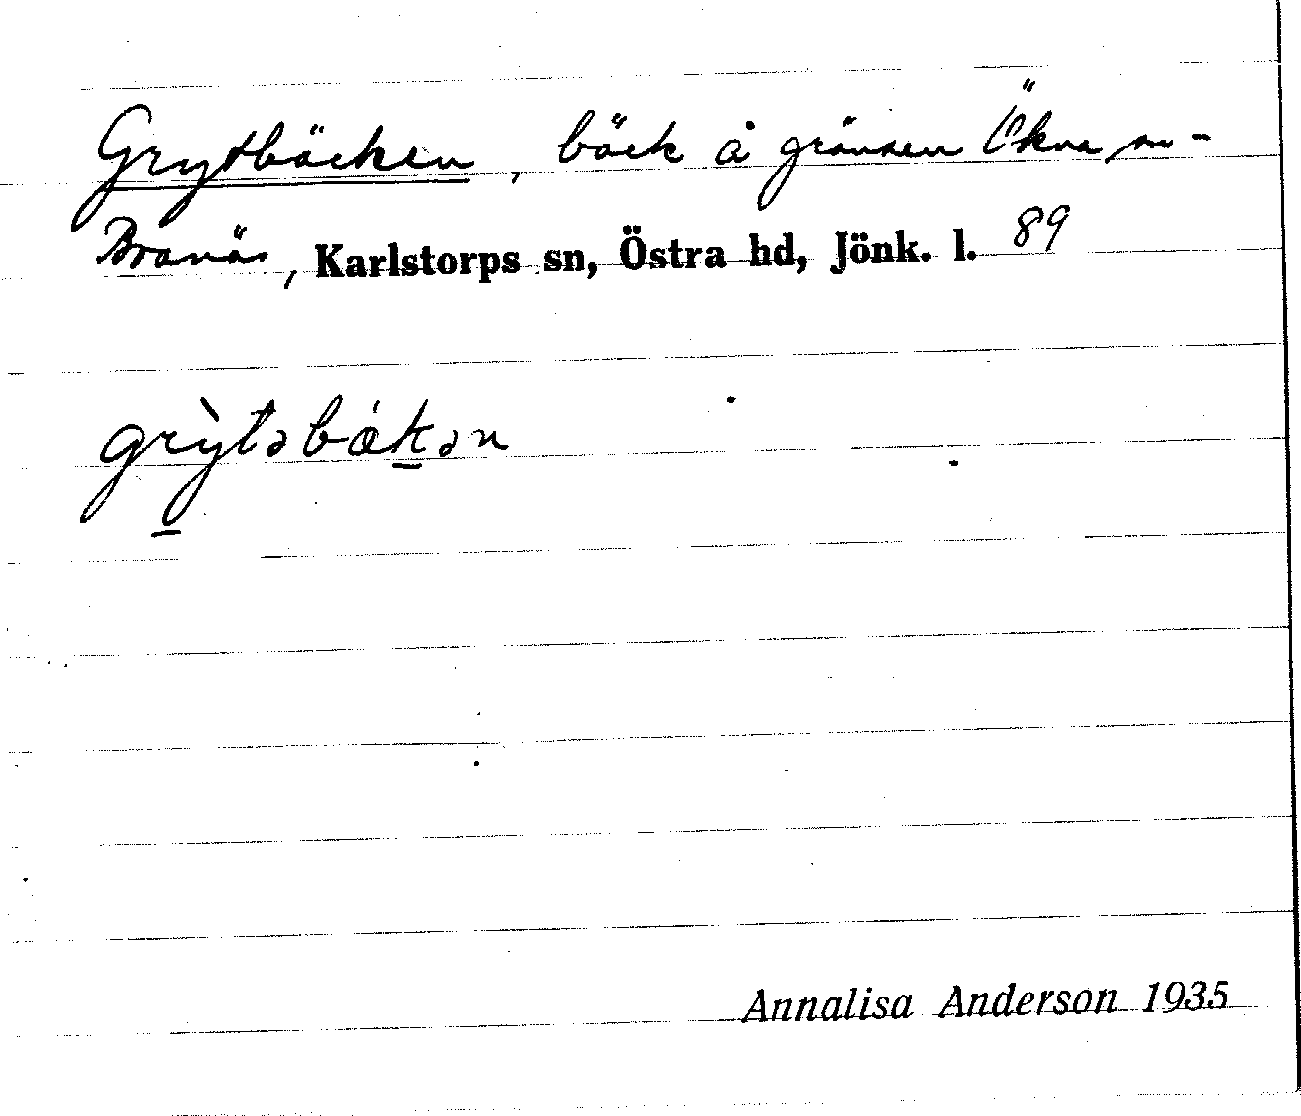 Grytbäcken, bäck å gränsen Ökna sn -
Branäs, Karlstorps sn, Östra hd, Jönk. l. 89
grỳtəbákən
Annalisa Anderson 1935